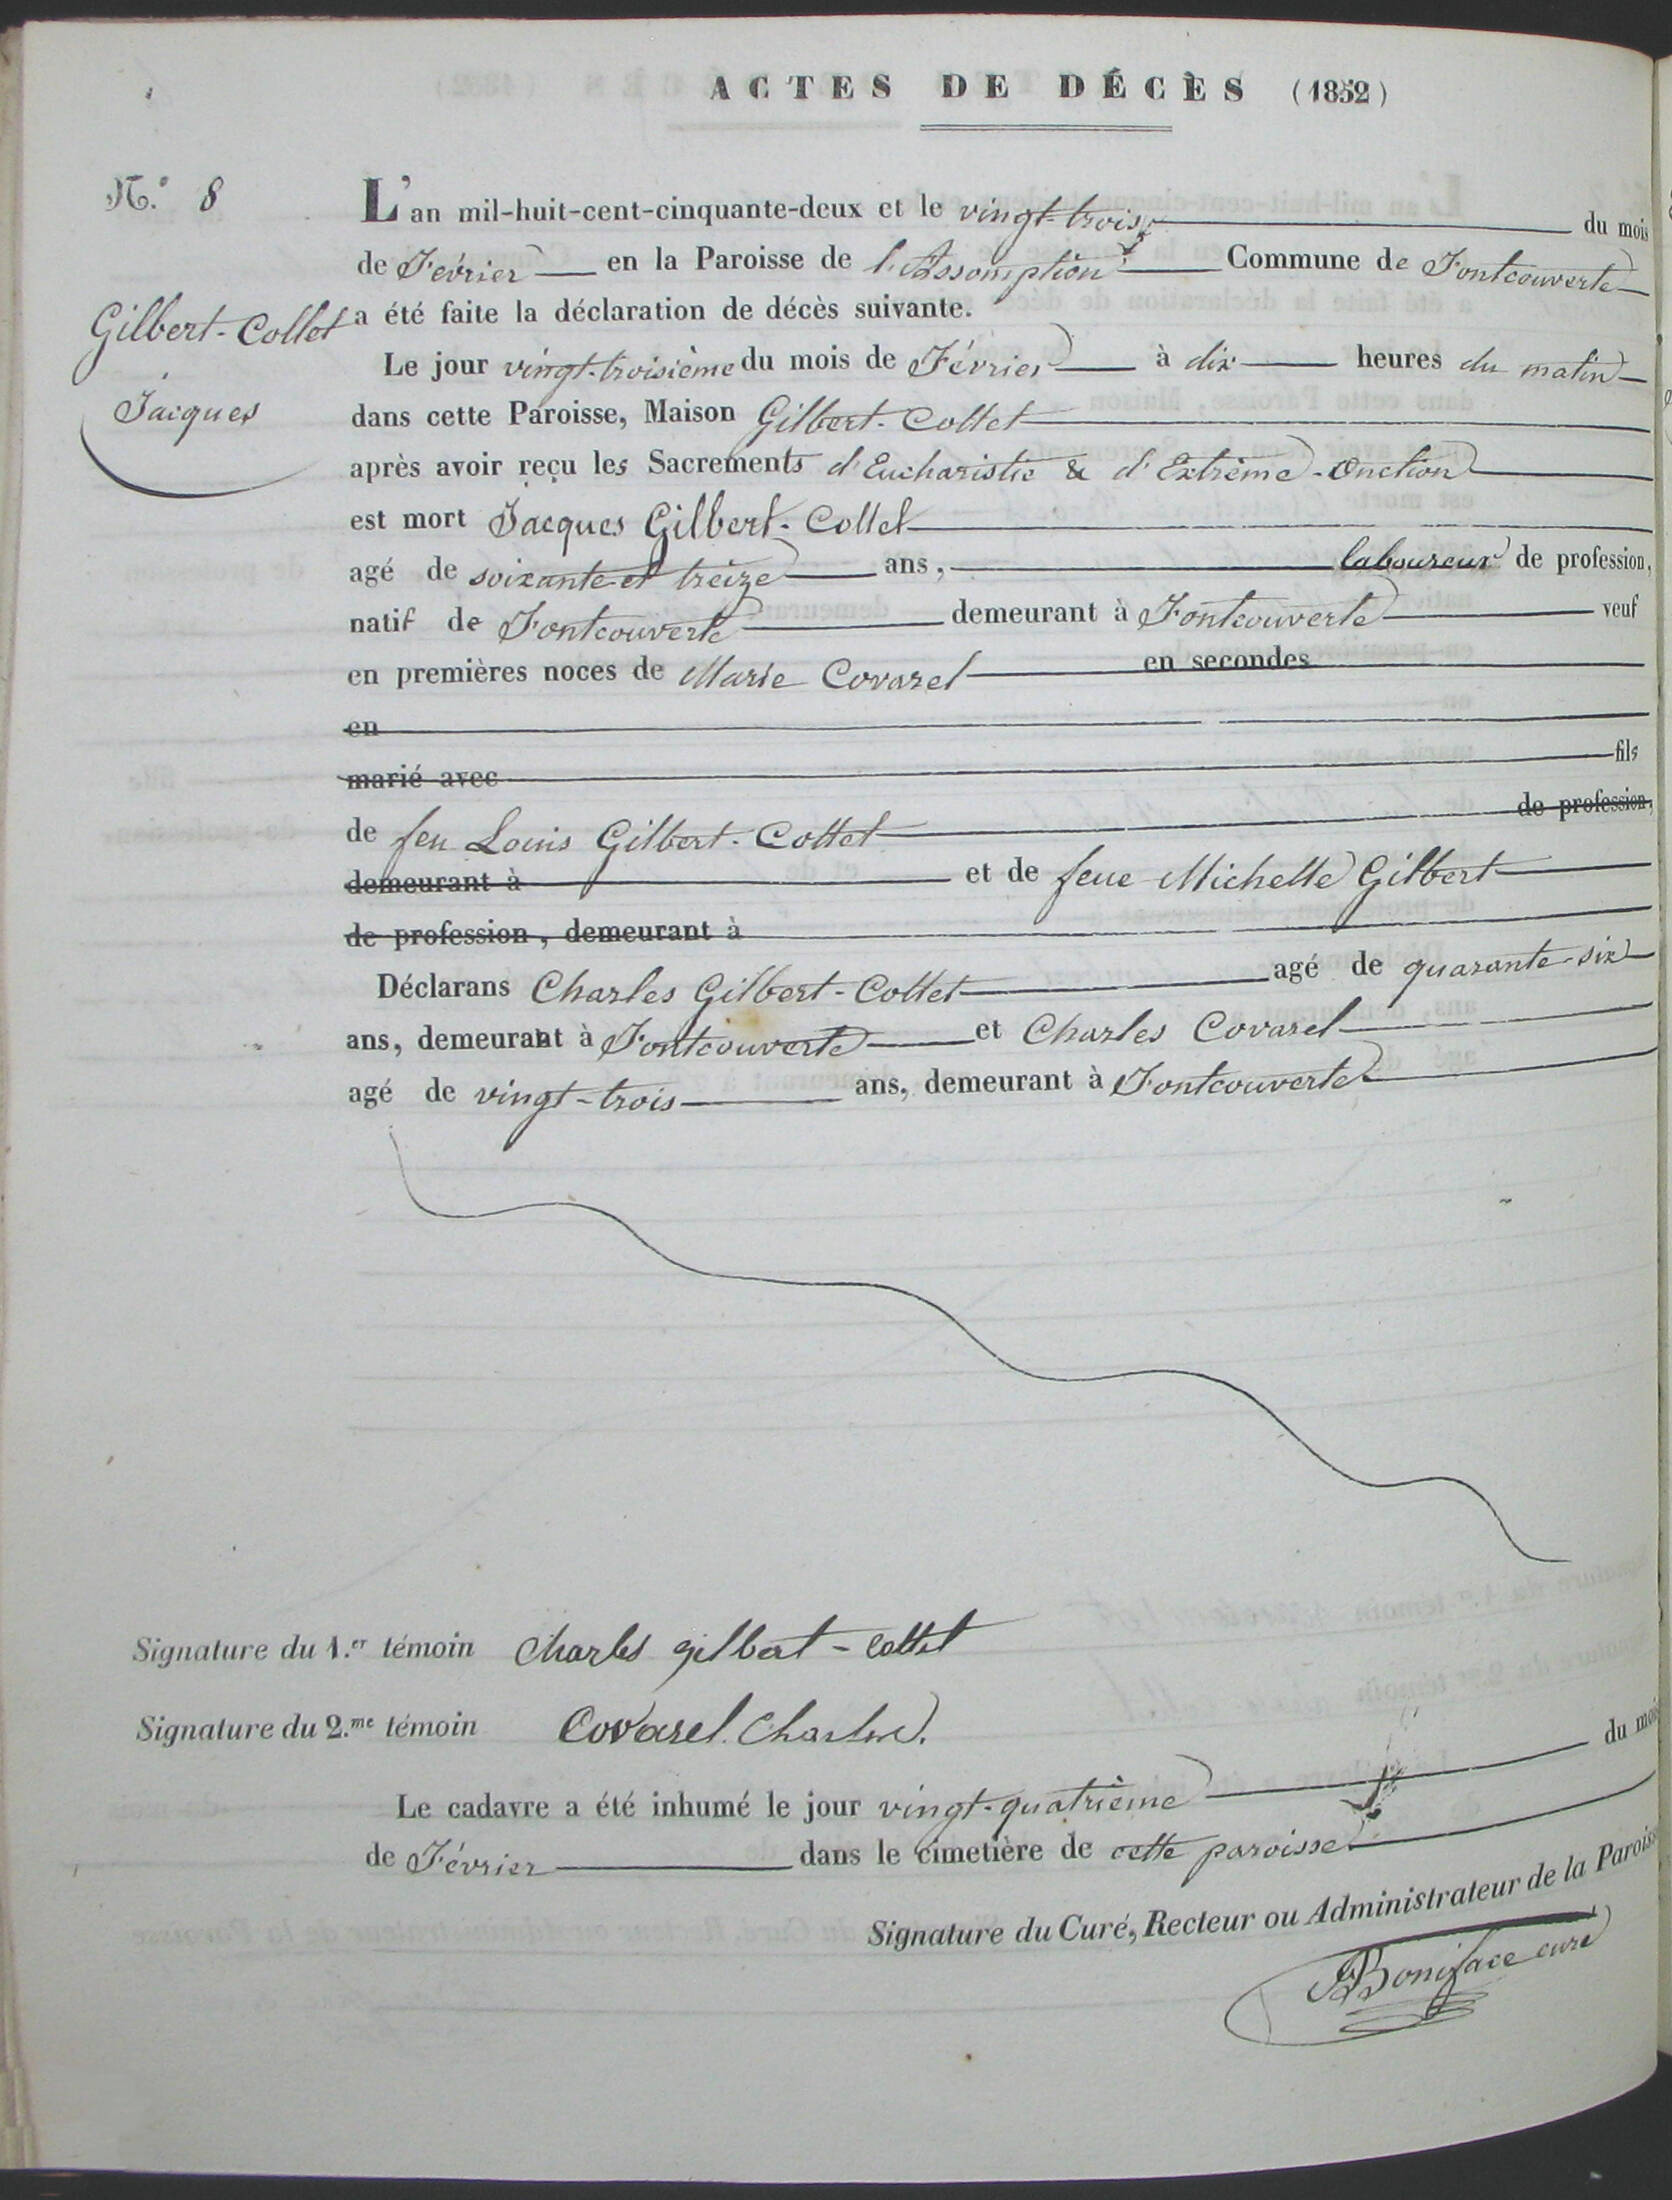 ACTES DE DÉCÈS (1852)
N.º 8
L'an mil-huit-cent-cinquante-deux et le vingt-trois du mois
de Février en la Paroisse de l'Assomption Commune de Fontcouverte
Gilbert-Collet
a été faite la déclaration de décès suivante.
Le jour vingt-troisième du mois de Février à dix heures du matin
Jacques
dans cette Paroisse, Maison Gilbert-Collet
après avoir reçu les Sacrements d'Eucharistie & d'Extrême-Onction
est mort Jacques Gilbert-Collet
agé de soixante et treize ans, laboureur de profession,
natif de Fontcouverte demeurant à Fontcouverte veuf
en premières noces de Marie Covarel en secondes
en
marié avec fils
de feu Louis Gilbert-Collet de profession,
demeurant à et de feue Michelle Gilbert
de profession, demeurant à
Déclarans Charles Gilbert-Collet agé de quarante-six
ans, demeurant à Fontcouverte et Charles Covarel
agé de vingt-trois ans, demeurant à Fontcouverte
Signature du 1.er témoin Charles gilbert-collet
Signature du 2.me témoin Covarel Charles.
Le cadavre a été inhumé le jour vingt-quatrième du mois
de Février dans le cimetière de cette paroisse
Signature du Curé, Recteur ou Administrateur de la Paroisse
Boniface curé